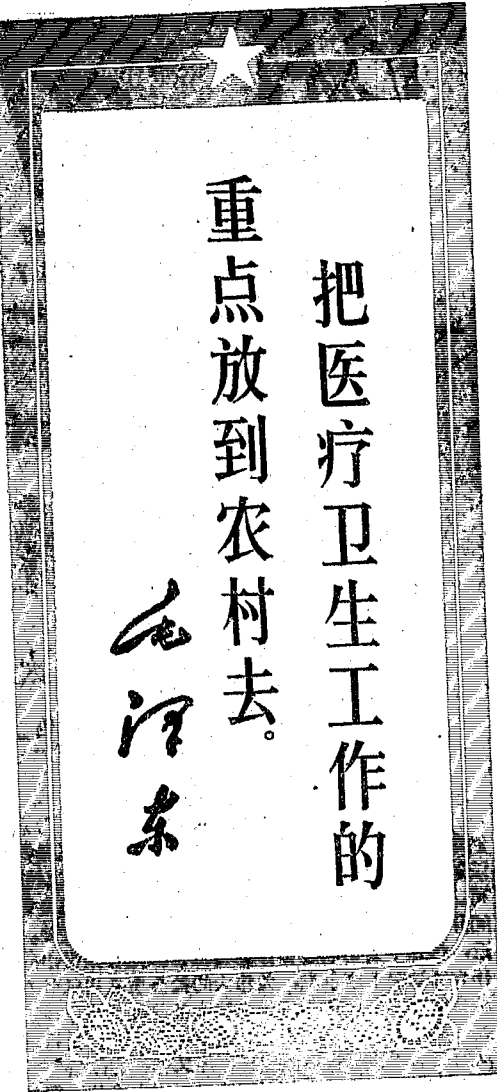 把医疗卫生工作的
重点放到农村去。
毛泽东